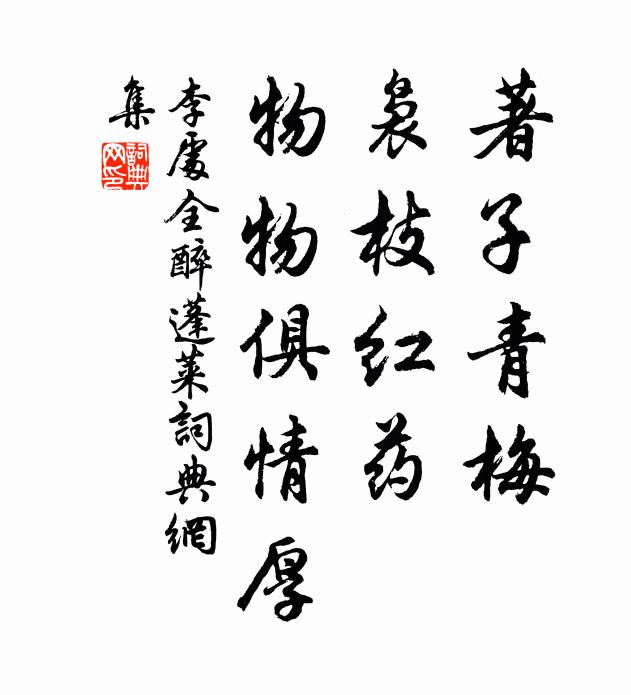 著子青梅
袅枝红药
物物俱情厚
李處全醉蓬莱詞典網
集
詞典网印